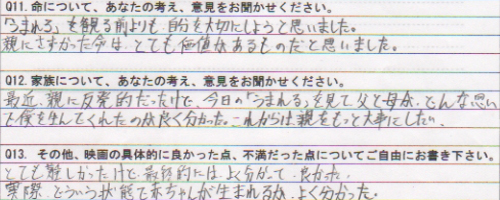 Q11. 命について、あなたの考え、意見をお聞かせください。
「うまれる」を観る前よりも自分を大切にしようと思いました。
親にさずかった命は、とても価値があるものだと思いました。
Q12. 家族について、あなたの考え、意見をお聞かせください。
最近、親に反発的だったけど、今日の「うまれる」を見て父と母が、どんな思い
で僕を生んでくれたのか良く分かった。これからは親をもっと大事にしたい。
Q13. その他、映画の具体的に良かった点、不満だった点についてご自由にお書き下さい。
とても難しかったけど最終的には、よく分かって良かった。
実際、どういう状態で赤ちゃんが生まれるか、よく分かった。